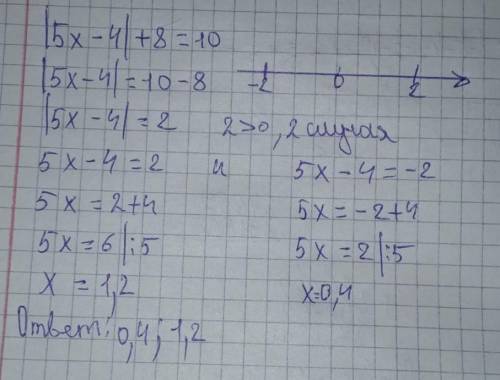 |5x-4|+8=10
|5x-4|=10-8
-2 0 2
|5x-4|=2 2>0, 2 случая
5x-4=2 и 5x-4=-2
5x=2+4 5x=-2+4
5x=6|:5 5x=2|:5
x=1,2 x=0,4
Ответ: 0,4; 1,2